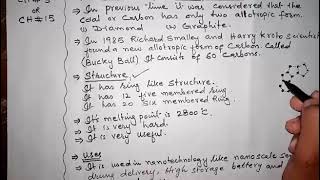 or
CH#15
⇒ In previous time it was considered that the
Coal or Carbon has only two allotropic form.
i) Diamond ii) Graphite.
⇒ In 1985 Richard Smalley and Harry Kroto Scientist
found a new allotropic form of Carbon Called
(Bucky Ball) It consists of 60 Carbons.
⇒ Structure
It has ring like Structure.
It has 12 five membered ring
It has 20 Six membered Ring.
⇒ It's melting point is 2800°C.
⇒ It is very hard.
⇒ It is very useful.
⇒ Uses
⇒ It is used in nanotechnology like nanoscale
drug delivery, High storage battery and